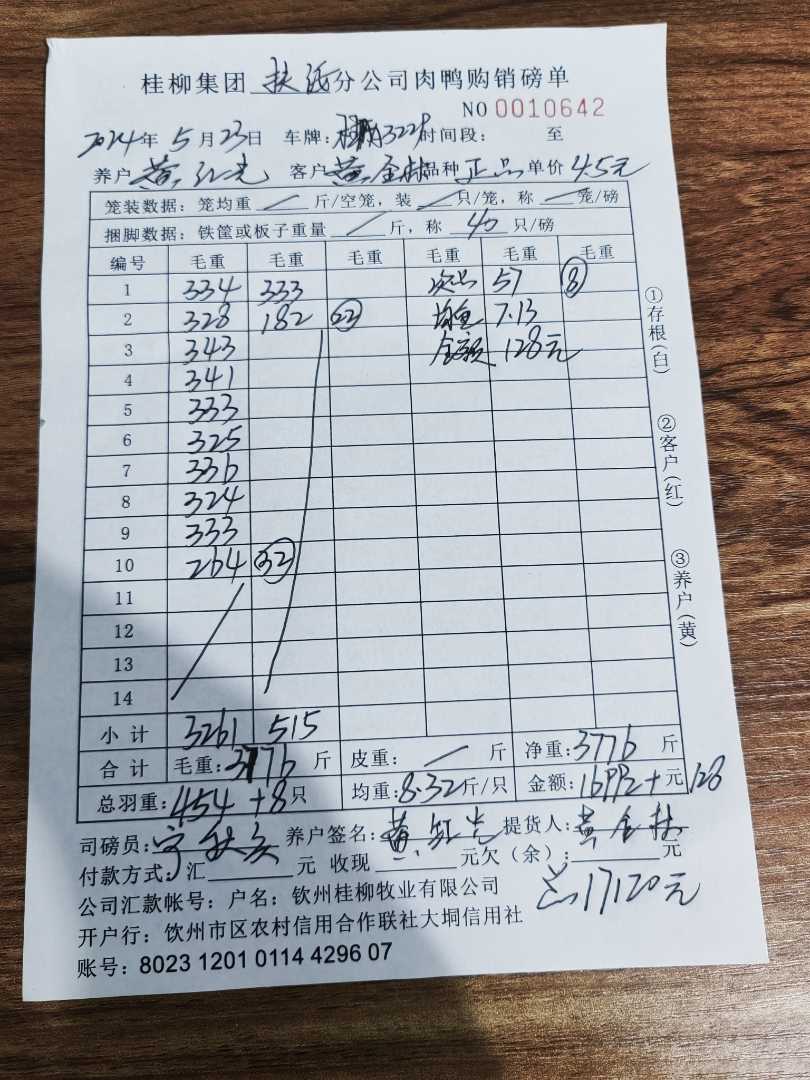 桂柳集团 扶绥 分公司肉鸭购销磅单
NO 0010642
2024年 5月23日 车牌: 3229 时间段: 至
养户 黄红先 客户 黄金林 品种 正品 单价 4.5元
笼装数据: 笼均重 / 斤/空笼, 装 / 只/笼, 称 / 笼/磅
捆脚数据: 铁筐或板子重量 / 斤, 称 40 只/磅
编号 毛重 毛重 毛重 毛重 毛重 毛重
1 334 333 次品 57 8
2 328 182 22 均重 7.13
3 343 金额 128元
4 341
5 333
6 325
7 336
8 324
9 333
10 264 32
11
12
13
14
小计 3261 515
合计 毛重: 3776 斤 皮重: / 斤 净重: 3776 斤
总羽重: 454+8只 均重: 8.32斤/只 金额: 16992+元 128
司磅员: 养户签名: 黄红先 提货人: 黄金林
付款方式: 汇 元 收现 元欠(余): 元
总17120元
公司汇款帐号: 户名: 钦州桂柳牧业有限公司
开户行: 钦州市区农村信用合作联社大垌信用社
账号: 8023 1201 0114 4296 07
①存根(白)
②客户(红)
③养户(黄)